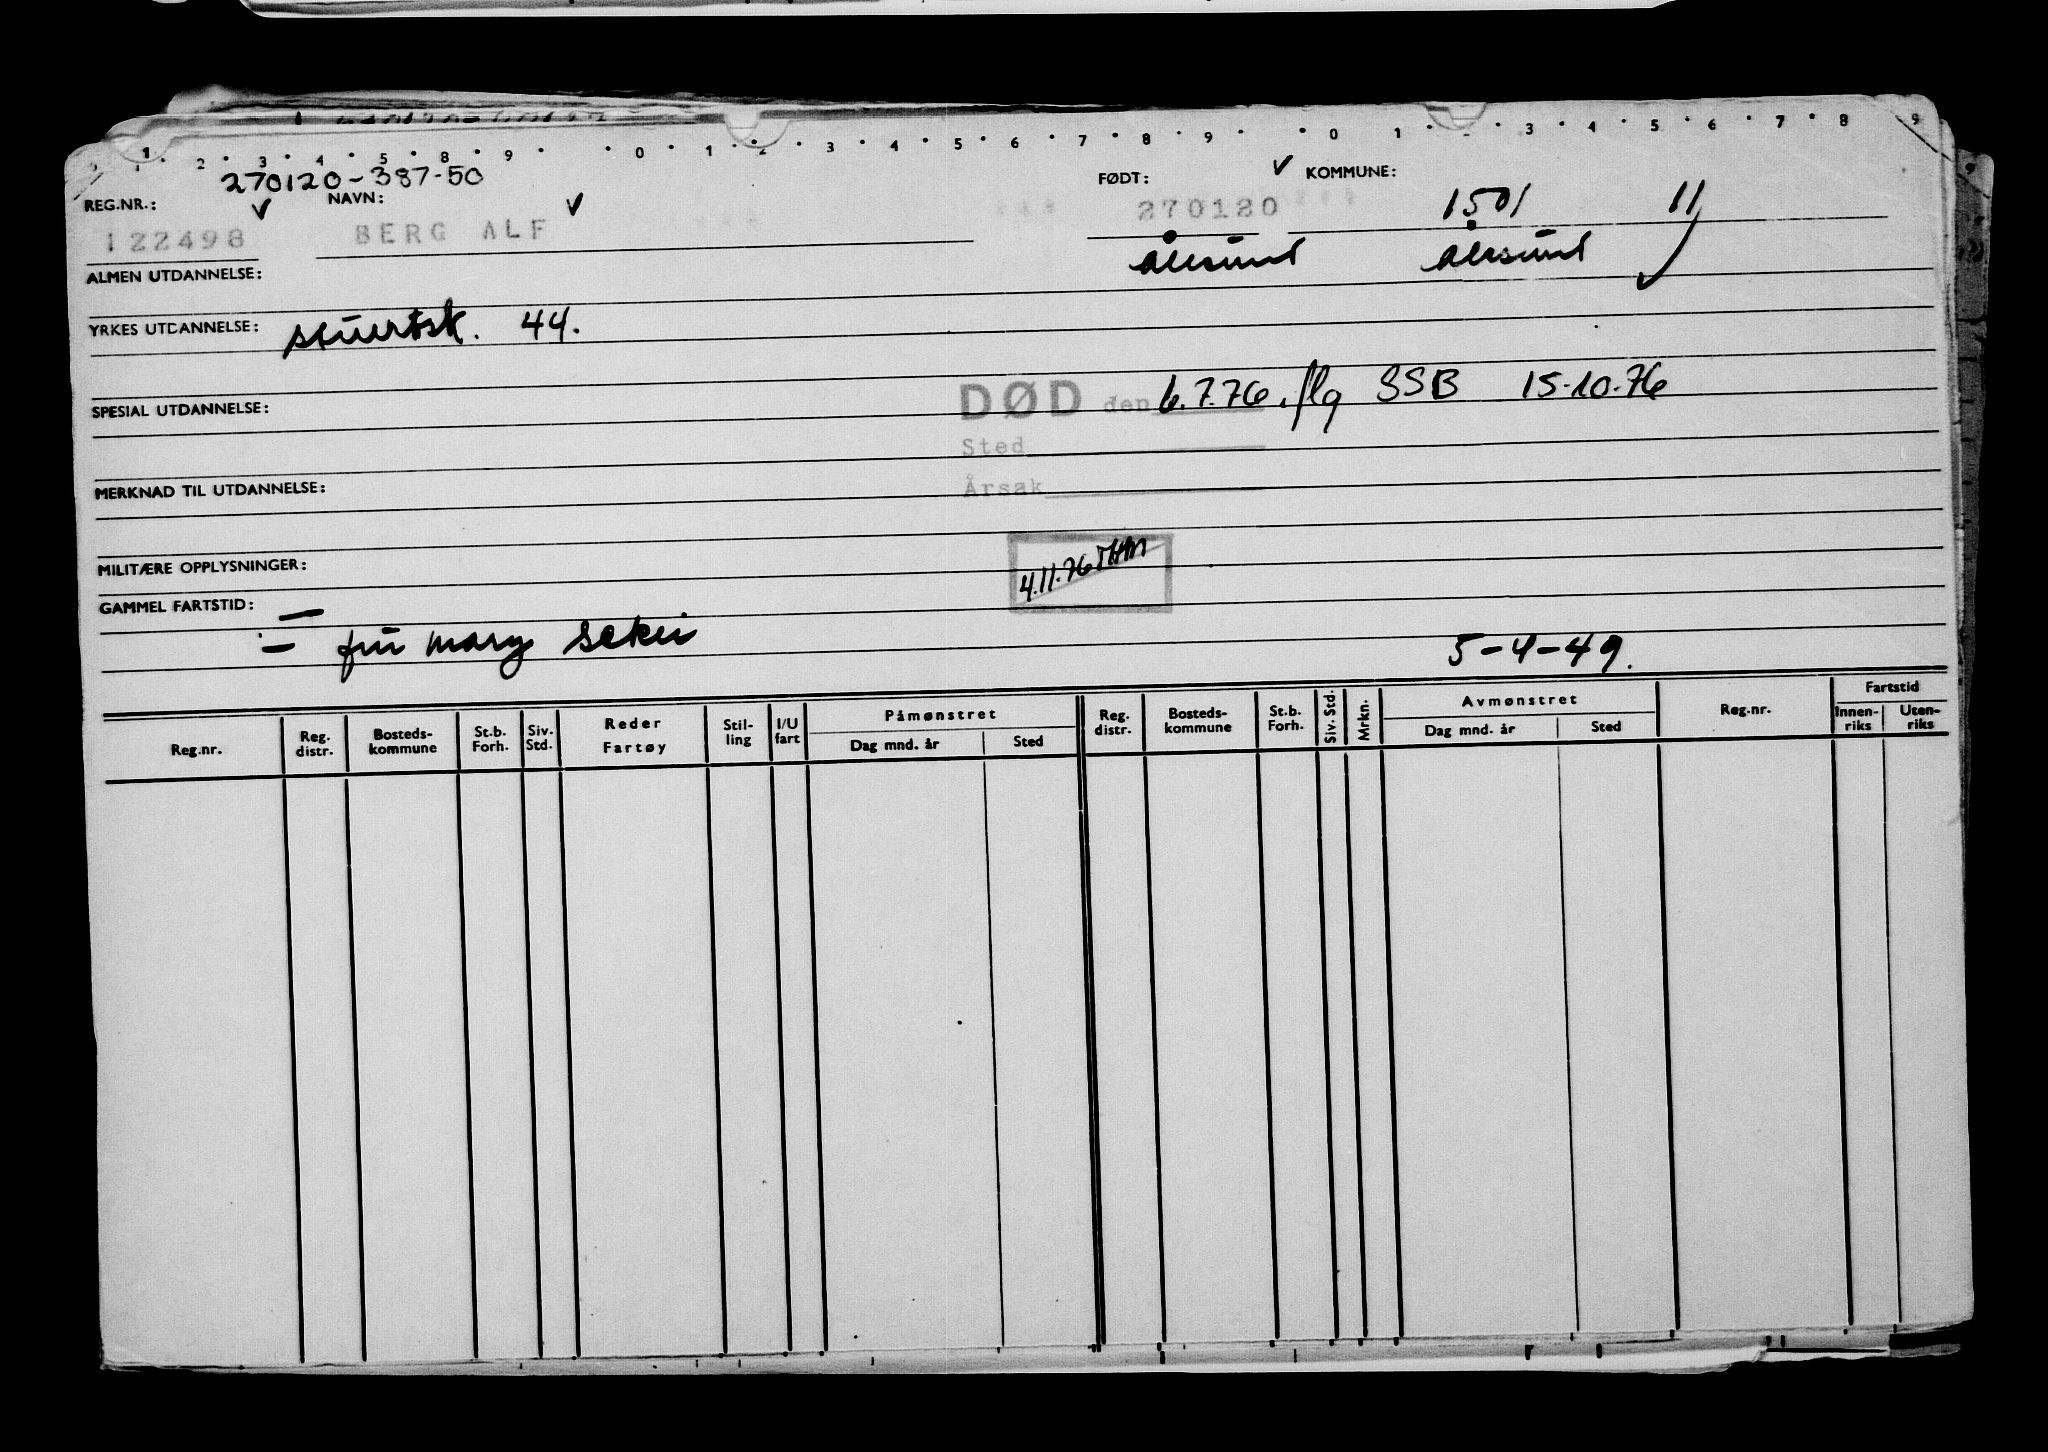 1 2 3 4 5 8 9 0 1 2 3 4 5 6 7 8 9 0 1 3 4 5 6 7 8 9
270120-387-50
REG.NR.: NAVN: FØDT: KOMMUNE:
122498 BERG ALF 270120 1501 11
ALMEN UTDANNELSE: Ålesund Ålesund
YRKES UTDANNELSE: stuertsk. 44.
SPESIAL UTDANNELSE: DØD den 6.7.76. flg SSB 15-10-76
Sted
MERKNAD TIL UTDANNELSE: Årsak
MILITÆRE OPPLYSNINGER: 4.11.76
GAMMEL FARTSTID:
- fru mary 5-4-49.
Reg.nr. Reg. distr. Bosteds-kommune St.b. Forh. Siv. Std. Reder Fartøy Stil-ling I/U fart Påmønstret Dag mnd. år Sted Reg. distr. Bosteds-kommune St.b. Forh. Siv. Std. Mrkn. Avmønstret Dag mnd. år Sted Reg.nr. Fartstid Innen-riks Uten-riks